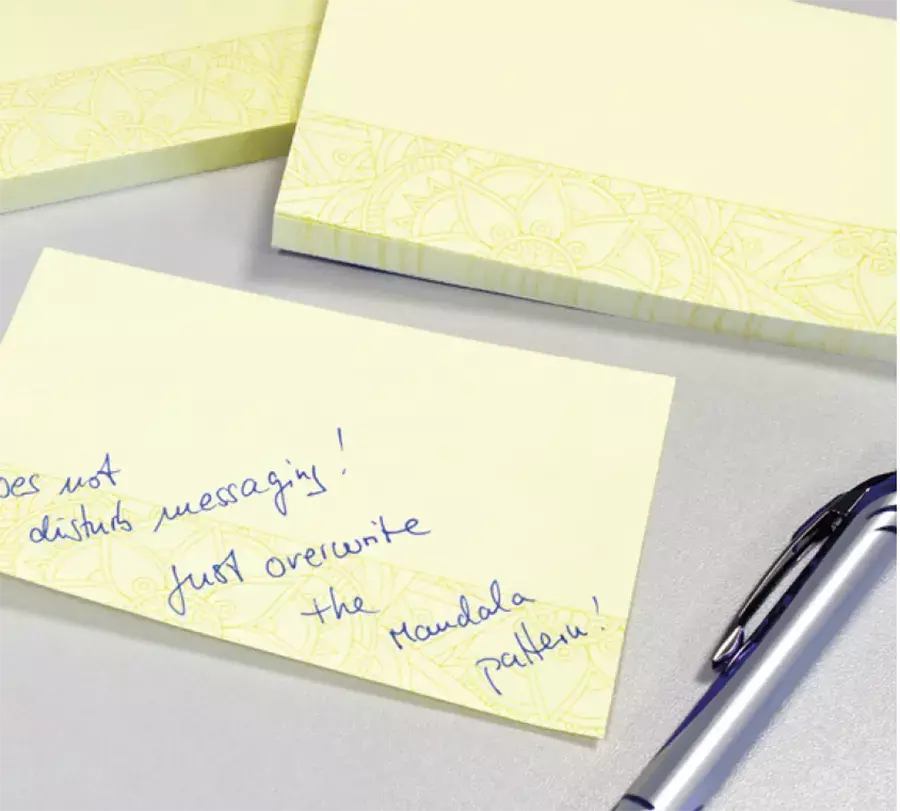 oes not
disturb messaging!
Just overwrite
the
Mandala
pattern!